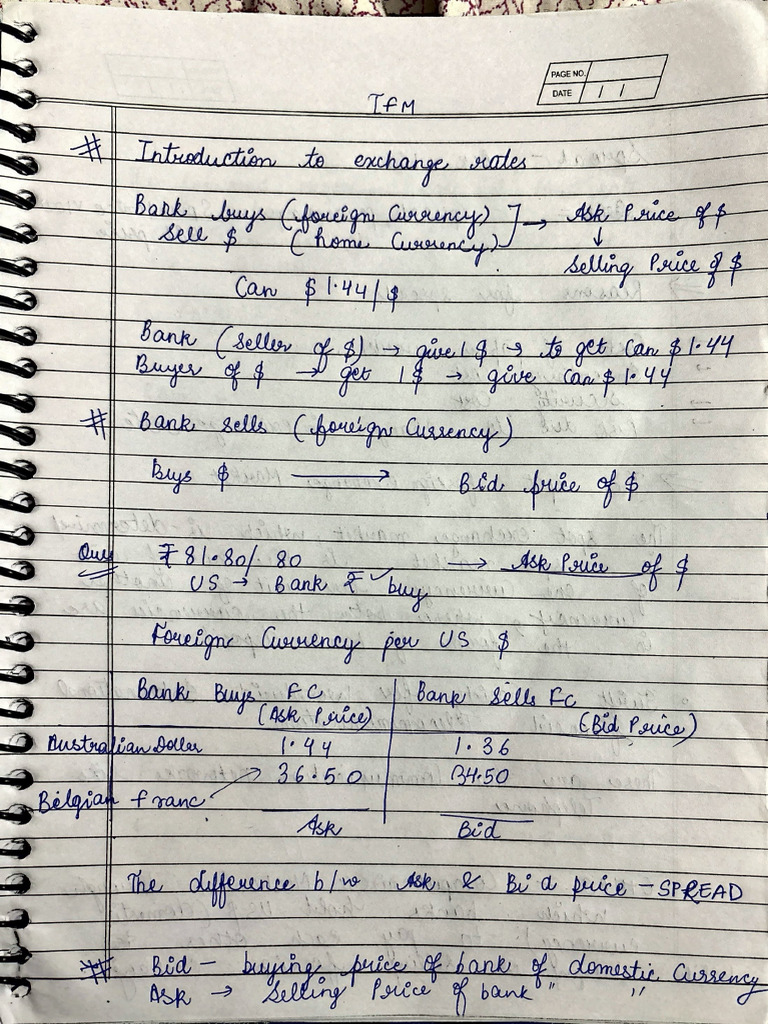 PAGE NO.
DATE / /
IFM
# Introduction to exchange rates
Bank buys (foreign Currency) ] → Ask Price of $
Sell $ (home Currency) ↓
Selling Price of $
Can $ 1.44/$
Bank (seller of $) → give 1 $ → to get Can $ 1.44
Buyer of $ → get 1 $ → give Can $ 1.44
# Bank sells (foreign Currency)
Buys $ → Bid price of $
Ques ₹ 81.80/ 80 → Ask Price of $
US → Bank ₹ ✓ buy
Foreign Currency per US $
Bank Buys FC Bank Sells Fc
(Ask Price) (Bid Price)
Australian Doller 1.44 1.36
36.50 34.50
Belgian franc
Ask Bid
The difference b/w Ask & Bid price - SPREAD
# Bid - buying price of bank of domestic Currency
Ask → Selling Price of bank " "